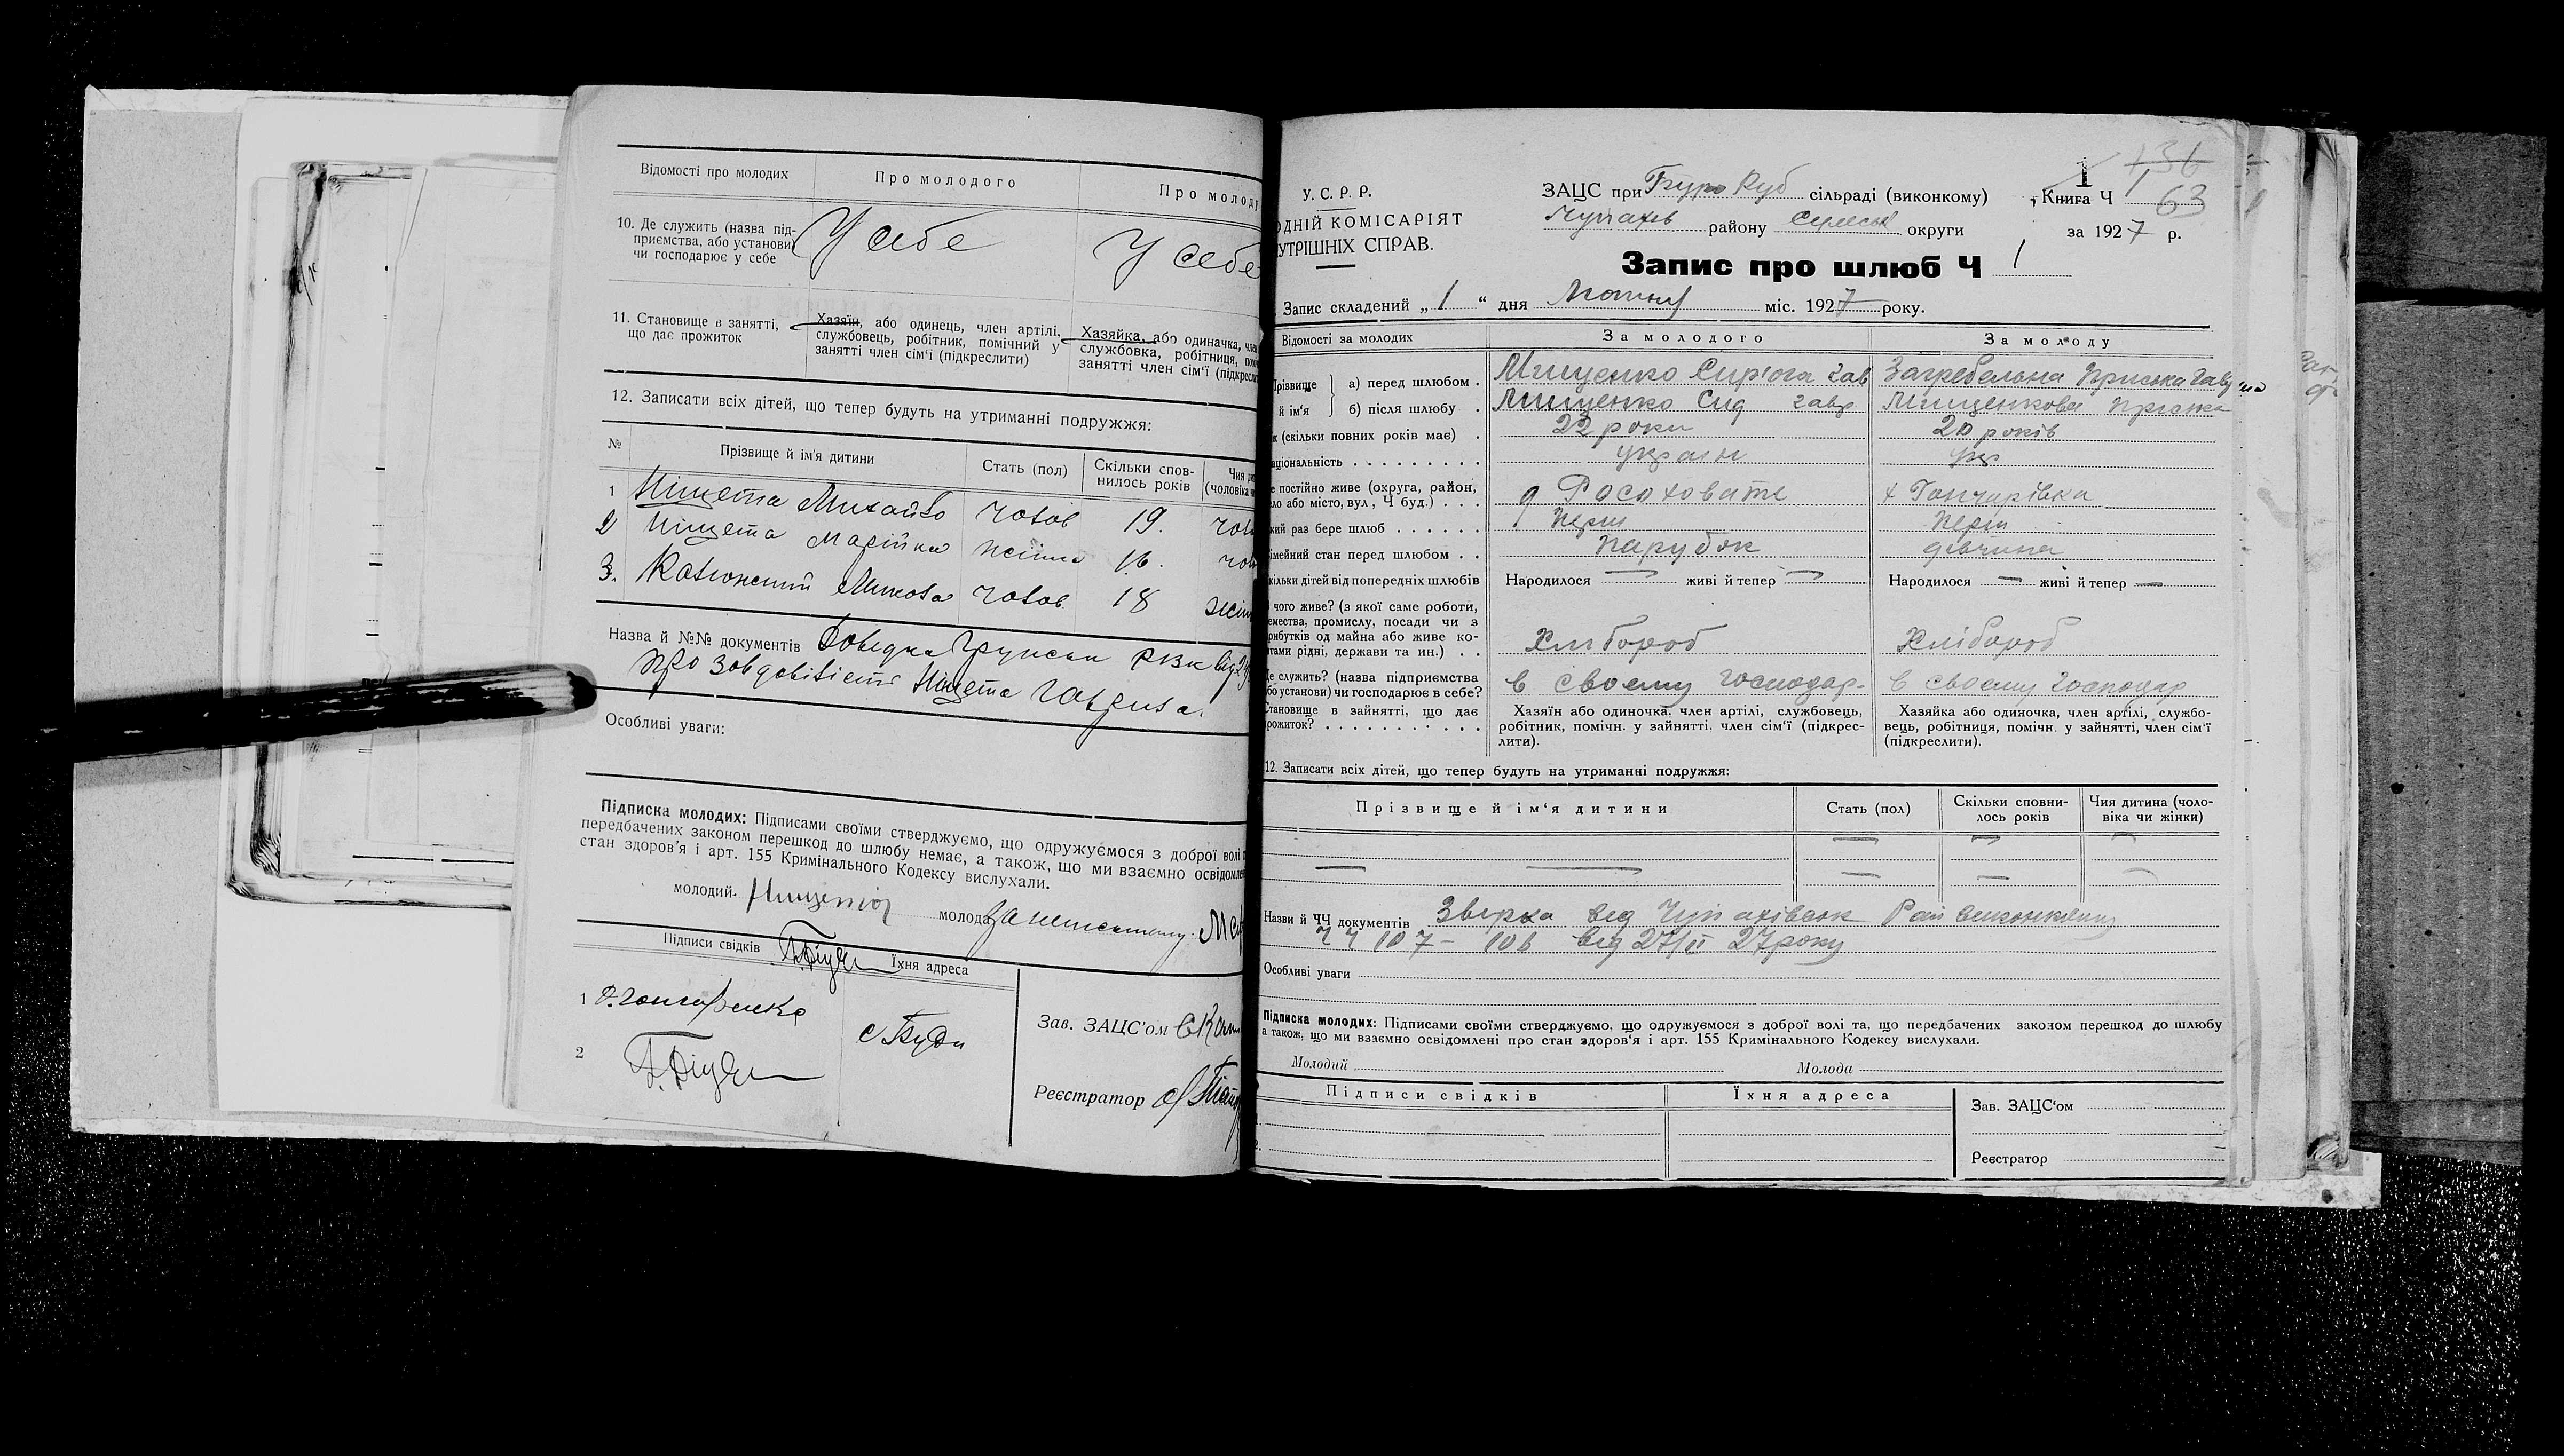 Відомості про молодих
Про молодого
Про молоду
10. Де служить (назва під-
приємства, або установи)
чи господарює у себе
У себе
У себе
11. Становище в занятті,
що дає прожиток
Хазяїн, або одинець, член артілі,
службовець, робітник, помічний у
занятті член сім'ї (підкреслити)
Хазяйка, або одиначка, член
службовка, робітниця, помі
занятті член сім'ї (підкресли
12. Записати всіх дітей, що тепер будуть на утриманні подружжя:
№
Прізвище й ім'я дитини
Стать (пол)
Скільки спов-
нилось років
Чия ди
(чоловіка ч
1 Нищета Михайло чолов 19. чол
2 Нищета Марійка жінка 16. чол
3. Микола чолов. 18 жін
Назва й №№ документів Довідка РВК від 29
про вдовілість Нищета Гаврила.
Особливі уваги:
Підписка молодих: Підписами своїми стверджуємо, що одружуємося з доброї волі т
передбачених законом перешкод до шлюбу немає, а також, що ми взаємно освідомле
стан здоров'я і арт. 155 Кримінального Кодексу вислухали.
молодий
молода
Підписи свідків
Їхня адреса
1
Гончаренко
2
Зав. ЗАЦС'ом
Реєстратор
У.С.Р.Р.
ОДНІЙ КОМІСАРІЯТ
УТРІШНІХ СПРАВ.
ЗАЦС при Буро Руб сільраді (виконкому)
Чупахів району Сумськ округи
1
Книга Ч 1
136
63
за 1927 р.
Запис про шлюб Ч 1
Запис складений „1“ дня міс. 1927 року.
Відомості за молодих
За молодого
За молоду
Прізвище
й ім'я
а) перед шлюбом .
б) після шлюбу .
Мищенко Гав
Загребельна Приська Гавр
Мищенко Сид Гавр
Мищенкова Приська
к (скільки повних років має) .
22 роки
20 років
аціональність . . . . . . . . .
україн
укр
е постійно живе (округа, район,
ло або місто, вул., Ч буд.) . . .
Росоховате
х Гончарівка
кий раз бере шлюб . . . . . .
перш
перш
імейний стан перед шлюбом . .
парубок
дівчина
кільки дітей від попередніх шлюбів
Народилося — живі й тепер —
Народилося — живі й тепер —
чого живе? (з якої саме роботи,
емества, промислу, посади чи з
рибутків од майна або живе ко-
тами рідні, держави та ин.) . .
Хлібороб
Хлібороб
е служить? (назва підприємства
бо установи) чи господарює в себе?
в своєму господар-
в своєму господар
Становище в зайнятті, що дає
рожиток? . . . . . . . . . . .
Хазяїн або одиночка, член артілі, службовець,
робітник, помічн. у зайнятті, член сім'ї (підкрес-
лити).
Хазяйка або одиночка, член артілі, службо-
вець, робітниця, помічн. у зайнятті, член сім'ї
(підкреслити).
12. Записати всіх дітей, що тепер будуть на утриманні подружжя:
Прізвище й ім'я дитини
Стать (пол)
Скільки сповни-
лось років
Чия дитина (чоло-
віка чи жінки)
Назви й ЧЧ документів Звірка від Чупахівськ Рай виконкому
ЧЧ 107 – 106 від 27/II 27 року
Особливі уваги
Підписка молодих: Підписами своїми стверджуємо, що одружуємося з доброї волі та, що передбачених законом перешкод до шлюбу
а також, що ми взаємно освідомлені про стан здоров'я і арт. 155 Кримінального Кодексу вислухали.
Молодий
Молода
Підписи свідків
Їхня адреса
Зав. ЗАЦС'ом
Реєстратор